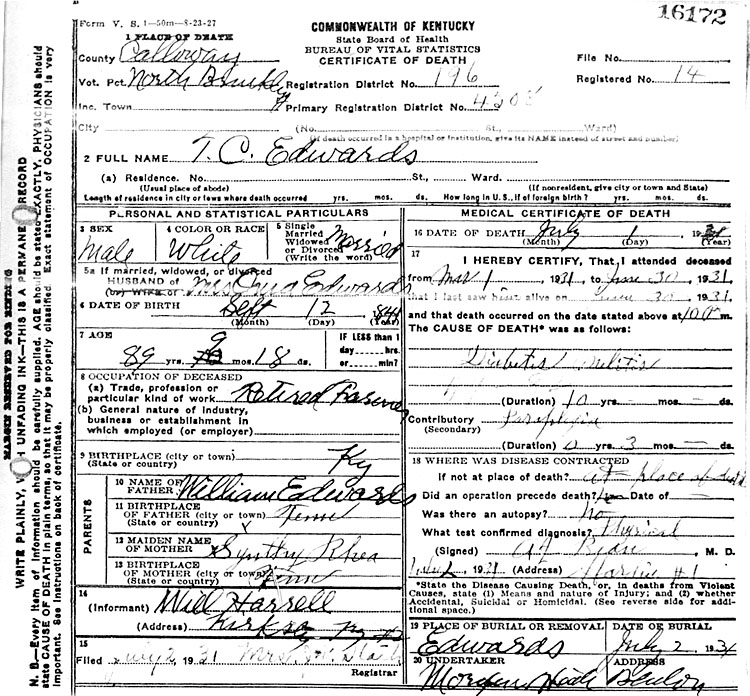 16172
Form V. S. 1—50m—8-23-27
COMMONWEALTH OF KENTUCKY
State Board of Health
BUREAU OF VITAL STATISTICS
CERTIFICATE OF DEATH
1 PLACE OF DEATH
County Calloway
File No.
Vot. Pct. North Registration District No. 196
Registered No. 14
Inc. Town Primary Registration District No.
City (No. St., Ward)
(If death occurred in a hospital or institution, give its NAME instead of street and number)
2 FULL NAME T. C. Edwards
(a) Residence. No. St., Ward.
(Usual place of abode) (If nonresident, give city or town and State)
Length of residence in city or town where death occurred yrs. mos. ds. How long in U. S., if of foreign birth? yrs. mos. ds.
PERSONAL AND STATISTICAL PARTICULARS
3 SEX Male
4 COLOR OR RACE White
5 Single Married Widowed or Divorced (Write the word) Married
5a If married, widowed, or divorced
HUSBAND of
(or) WIFE of Mrs Edwards
6 DATE OF BIRTH Sept 12
(Month) (Day) (Year)
7 AGE 89 yrs. 9 mos. 18 ds.
IF LESS than 1 day hrs. or min?
8 OCCUPATION OF DECEASED
(a) Trade, profession or particular kind of work Retired Farmer
(b) General nature of industry, business or establishment in which employed (or employer)
9 BIRTHPLACE (city or town)
(State or country) Ky
PARENTS
10 NAME OF FATHER William Edwards
11 BIRTHPLACE OF FATHER (city or town) (State or country) Tenn
12 MAIDEN NAME OF MOTHER Rhea
13 BIRTHPLACE OF MOTHER (city or town) (State or country) Tenn
14
(Informant) Will Harrell
(Address) Kirksey Ky
15
Filed July 2 1931 Mrs
Registrar
MEDICAL CERTIFICATE OF DEATH
16 DATE OF DEATH July 1 19
(Month) (Day) (Year)
17
I HEREBY CERTIFY, That I attended deceased
from Mar 1, 1931, to June 30, 1931,
that I last saw h alive on June 30, 1931,
and that death occurred on the date stated above at m.
The CAUSE OF DEATH* was as follows:
Diabetis
(Duration) 10 yrs. mos. ds.
Contributory Paraplegia
(Secondary)
(Duration) 0 yrs. 3 mos. ds.
18 WHERE WAS DISEASE CONTRACTED
If not at place of death? at place of death
Did an operation precede death? Date of
Was there an autopsy? No
What test confirmed diagnosis? Physical
(Signed) M. D.
(Address) Hardin #1
*State the Disease Causing Death, or, in deaths from Violent
Causes, state (1) Means and nature of Injury; and (2) whether
Accidental, Suicidal or Homicidal. (See reverse side for addi-
tional space.)
19 PLACE OF BURIAL OR REMOVAL DATE OF BURIAL
Edwards July 2 19
20 UNDERTAKER ADDRESS
Morgan Benton
MARGIN RESERVED FOR BINDING
WRITE PLAINLY, WITH UNFADING INK—THIS IS A PERMANENT RECORD
N. B.—Every item of information should be carefully supplied. AGE should be stated EXACTLY. PHYSICIANS should
state CAUSE OF DEATH in plain terms, so that it may be properly classified. Exact statement of OCCUPATION is very
important. See instructions on back of certificate.